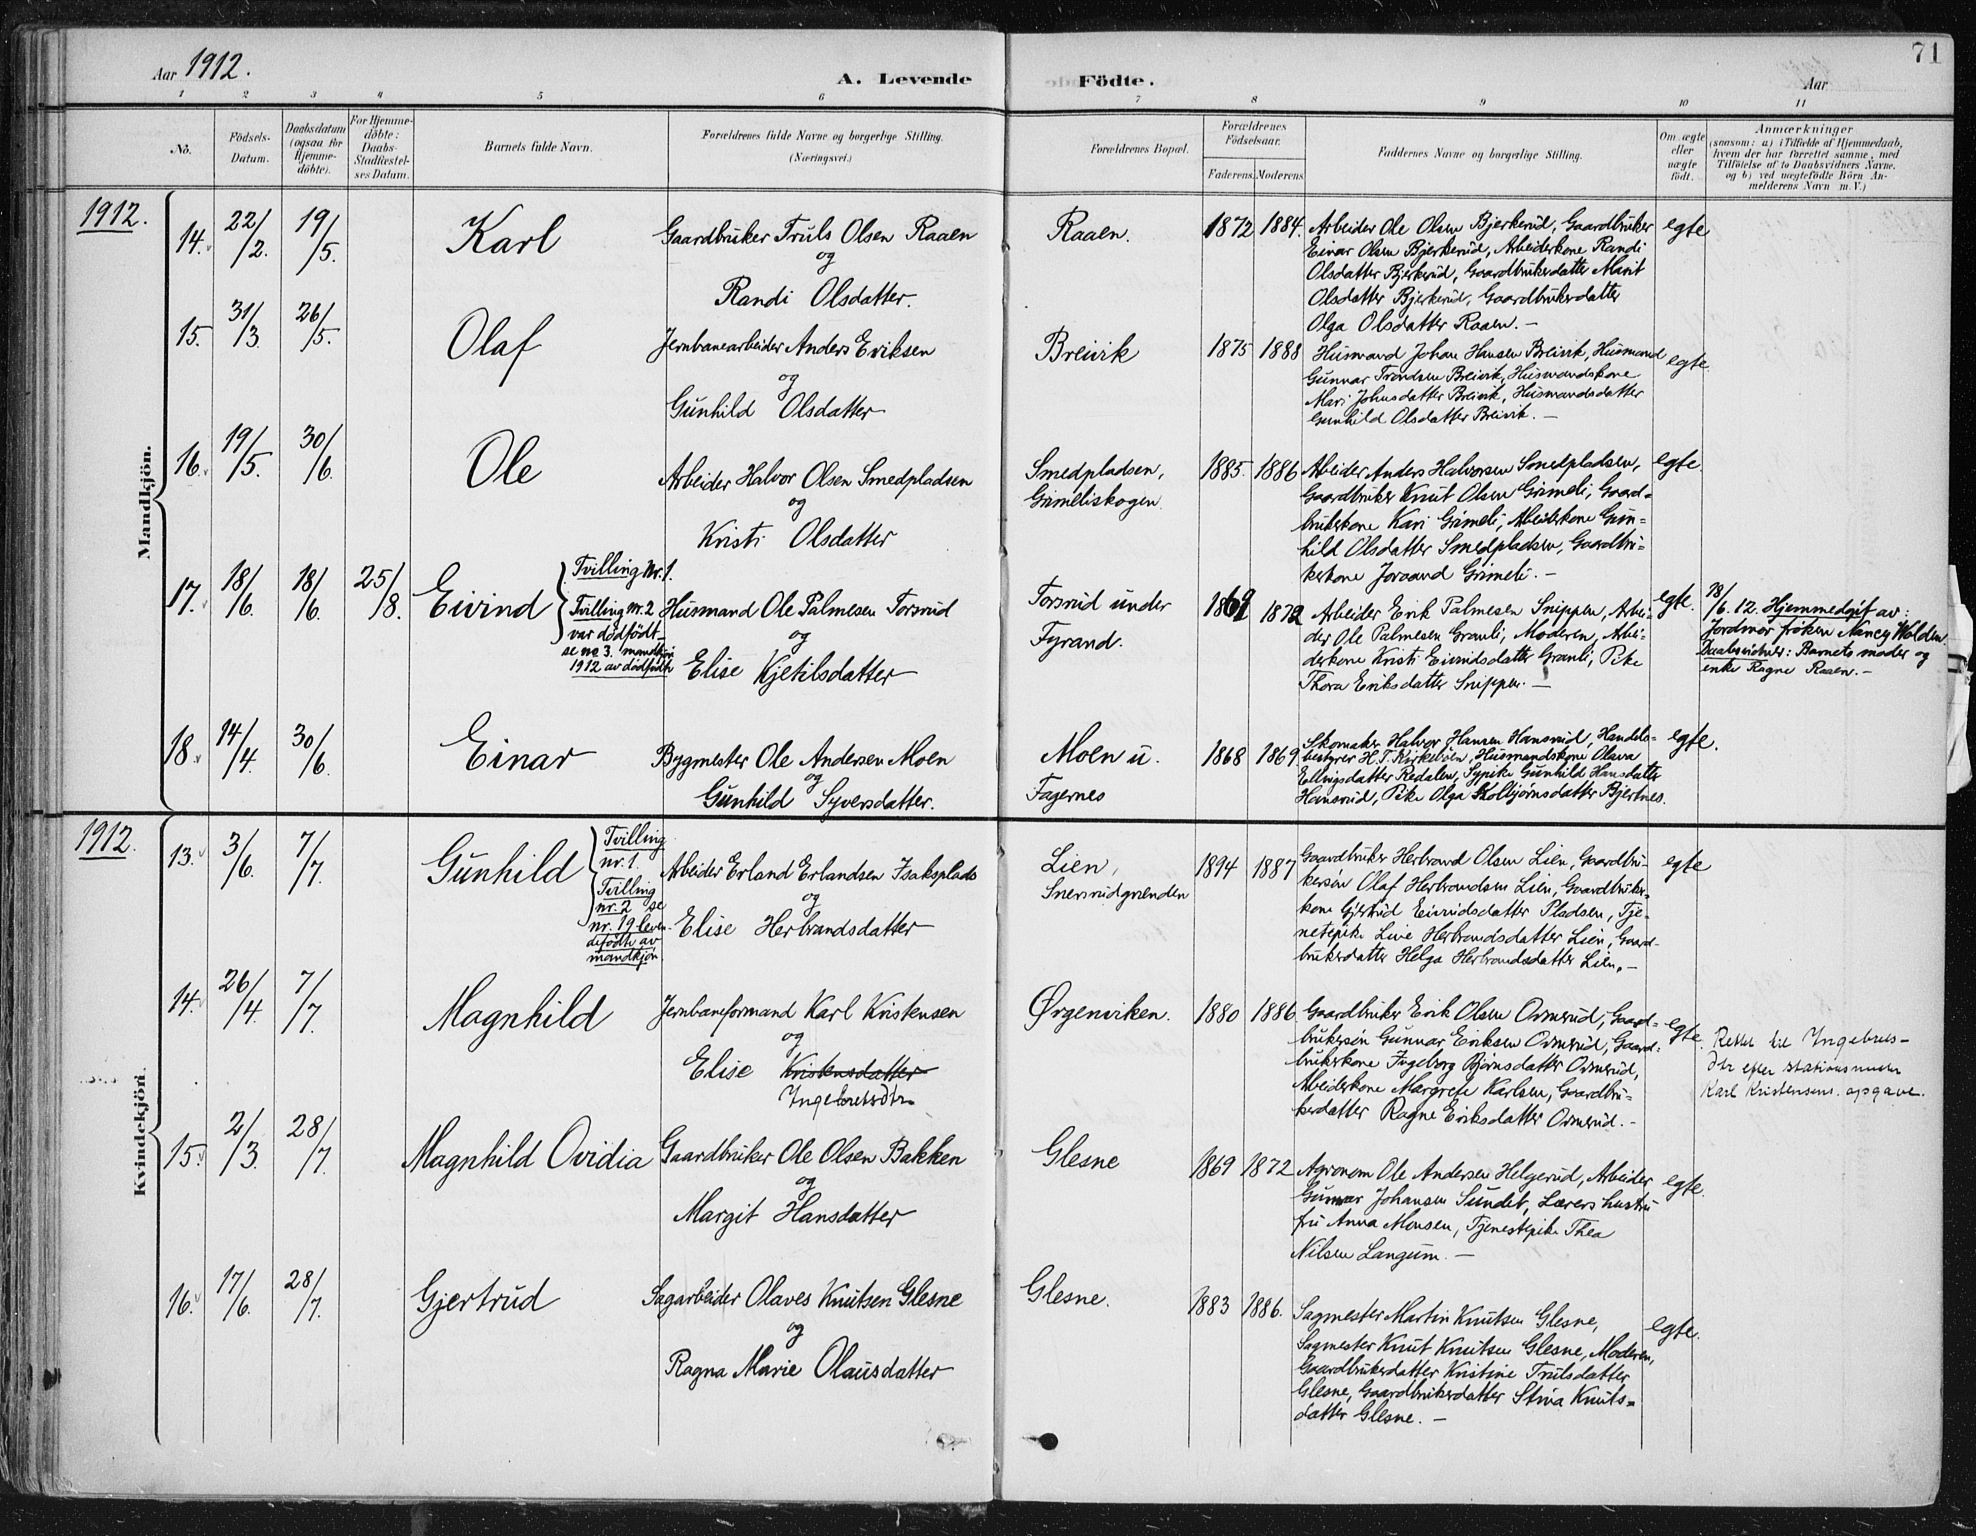 Aar 1912.
A. Levende
Födte.
Aar
71
1 2 3 4 5 6 7 8 9 10 11
No.
Födsels-
Datum.
Daabsdatum
(ogsaa for
Hjemme-
döbte).
For Hjemme-
döbte:
Daabs-
Stadfæstel-
ses Datum.
Barnets fulde Navn.
Forældrenes fulde Navne og borgerlige Stilling.
(Næringsvei.)
Forældrenes Bopæl.
Forældrenes
Födselsaar.
Faderens. Moderens.
Faddernes Navne og borgerlige Stilling.
Om ægte
eller
uægte
födt.
Anmærkninger
(saasom: a) i Tilfælde af Hjemmedaab,
hvem der har forrettet samme, med
Tilföielse af to Daabsvidners Navne,
og b) ved uægtefödte Börn An-
melderens Navn m. V.)
Mandkjön.
1912.
14. 22/2. 19/5.
Karl
Gaardbruker Truls Olsen Raaen
og
Randi Olsdatter.
Raaen.
1872 1884.
Arbeider Ole Olsen Bjerkerud, Gaardbruker
Einar Olsen Bjerkerud, Arbeiderkone Randi
Olsdatter Bjerkerud, Gaardbrukerdatter Marit
Olsdatter Bjerkerud, Gaardbrukerdatter
Olga Olsdatter Raaen. -
egte
15. 31/3. 26/5.
Olaf
Jernbanearbeider Anders Eriksen
og
Gunhild Olsdatter
Breivik
1875 1888
Husmand Johan Hansen Breivik, Husmand
Gunnar Trondsen Breivik, Husmandskone
Mari Johnsdatter Breivik, Husmandsdatter
Gunhild Olsdatter Breivik. -
egte.
16. 19/5. 30/6.
Ole
Arbeider Halvor Olsen Smedpladsen
og
Kristi Olsdatter
Smedpladsen,
Grimeliskogen
1885. 1886
Arbeider Anders Halvorsen Smedpladsen,
Gaardbruker Knut Olsen Grimeli, Gaard-
brukerkone Kari Grimeli, Arbeiderkone Gun-
hild Olsdatter Smedpladsen, Gaardbru-
kerkone Joraand Grimeli. -
egte.
17. 18/6. 18/6. 25/8.
Eivind
Tvilling Nr. 1.
Tvilling nr. 2
var dödfödt -
se no 3. mandkjön
1912 av dödfödte
Husmand Ole Palmesen Torsrud
og
Elise Kjetilsdatter
Torsrud under
Fyrand.
1869 1872
Arbeider Erik Palmesen Snippen, Arbei-
der Ole Palmesen Granli, Moderen, Arbei-
derkone Kristi Eivindsdatter Granli, Pike
Thora Eriksdatter Snippen. -
egte.
18/6. 12. Hjemmedöpt av:
Jordmor fröken Nancy Wolden.
Daabsvidner: Barnets moder og
enke Ragne Raaen. -
18. 14/4. 30/6.
Einar
Bygmester Ole Andersen Moen
og
Gunhild Syversdatter.
Moen u.
Fagernes
1868 1869
Skomaker Halvor Hansen Hansrud, Handels-
bestyrer H. T. Kirkevoien, Husmandskone Olava
Ellingsdatter Redalen, Sypike Gunhild Hansdatter
Hansrud, Pike Olga Skolbjörnsdatter Bjertnes.
egte.
Kvindekjön.
1912.
13. 3/6. 7/7.
Gunhild
Tvilling
nr. 1.
Tvilling
nr. 2 se
nr. 19 leven-
defödte av
mandkjön.
Arbeider Erland Erlandsen Isaksplads
og
Elise Herbrandsdatter
Lien,
Snersrudgrænden
1894 1887
Gaardbruker Herbrand Olsen Lien, Gaardbru-
kersön Olaf Herbrandsen Lien, Gaardbruker-
kone Gjertrud Eivindsdatter Pladsen, Tje-
nestepike Live Herbrandsdatter Lien, Gaard-
brukerdatter Helga Herbrandsdatter Lien. -
egte
14. 26/4. 7/7.
Magnhild
Jernbaneformand Karl Kristensen
og
Elise Kristensdatter
Ingebretsdtr.
Ørgenviken.
1880 1886
Gaardbruker Erik Olsen Ormerud, Gaard-
brukersön Gunnar Eriksen Ormerud, Gaard-
brukerkone Ingeborg Björnsdatter Ormerud,
Arbeiderkone Margrete Karlsen, Gaardbru-
kerdatter Ragne Eriksdatter Ormerud. -
egte.
Rettet til Ingebrets-
dtr efter stationsmester
Karl Kristensens opgave.
15. 2/3. 28/7.
Magnhild Ovidia
Gaardbruker Ole Olsen Bakken
og
Margit Hansdatter
Glesne
1869 1872
Agronom Ole Andersen Helgerud, Arbeider
Gunnar Johansen Sundet, Lærers hustru
fru Anna Monsen, Tjenestepike Thea
Nilsen Langum. -
egte.
16. 17/6. 28/7.
Gjertrud
Sagarbeider Olaves Knutsen Glesne
og
Ragna Marie Olausdatter
Glesne.
1883 1886.
Sagmester Martin Knutsen Glesne,
Sagmester Knut Knutsen Glesne, Moderen,
Gaardbrukerdatter Kristine Trulsdatter
Glesne, Gaardbrukerdatter Stina Knuts-
datter Glesne. -
egte.